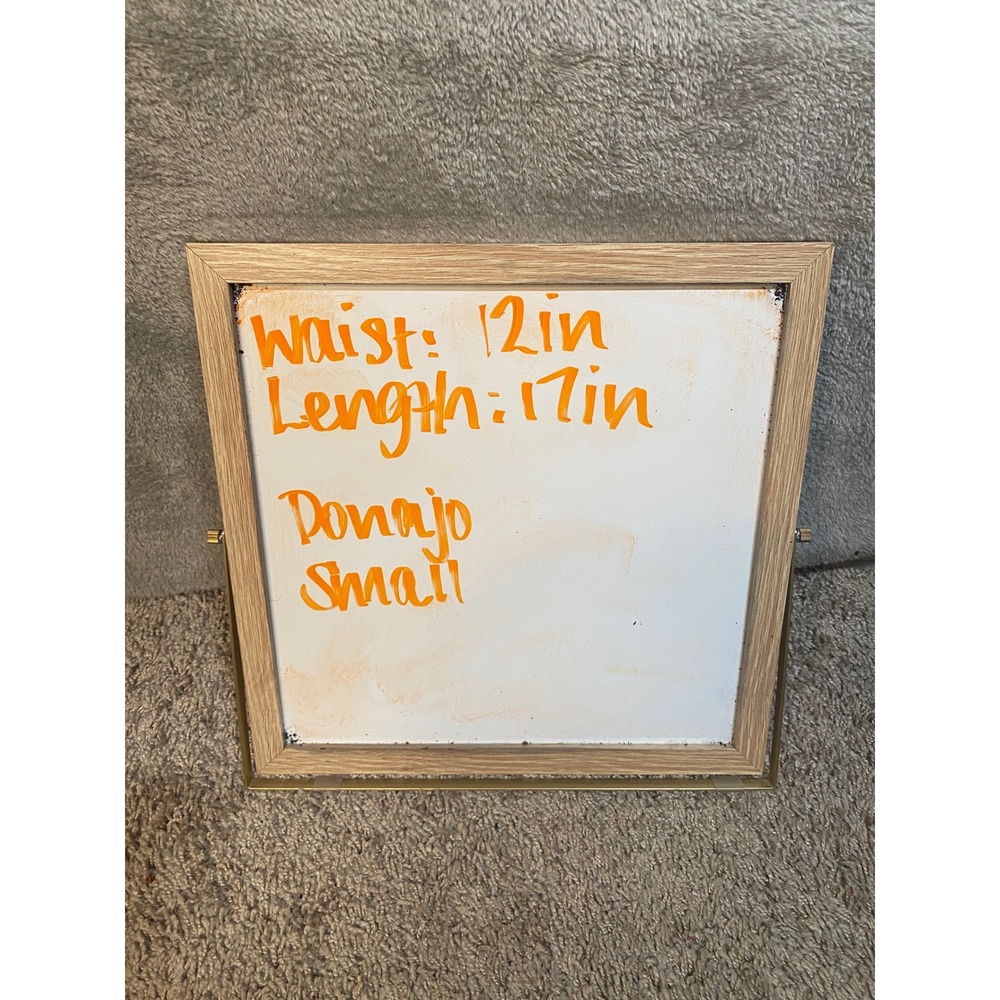 Waist: 12in
Length: 17in
Donajo
Small